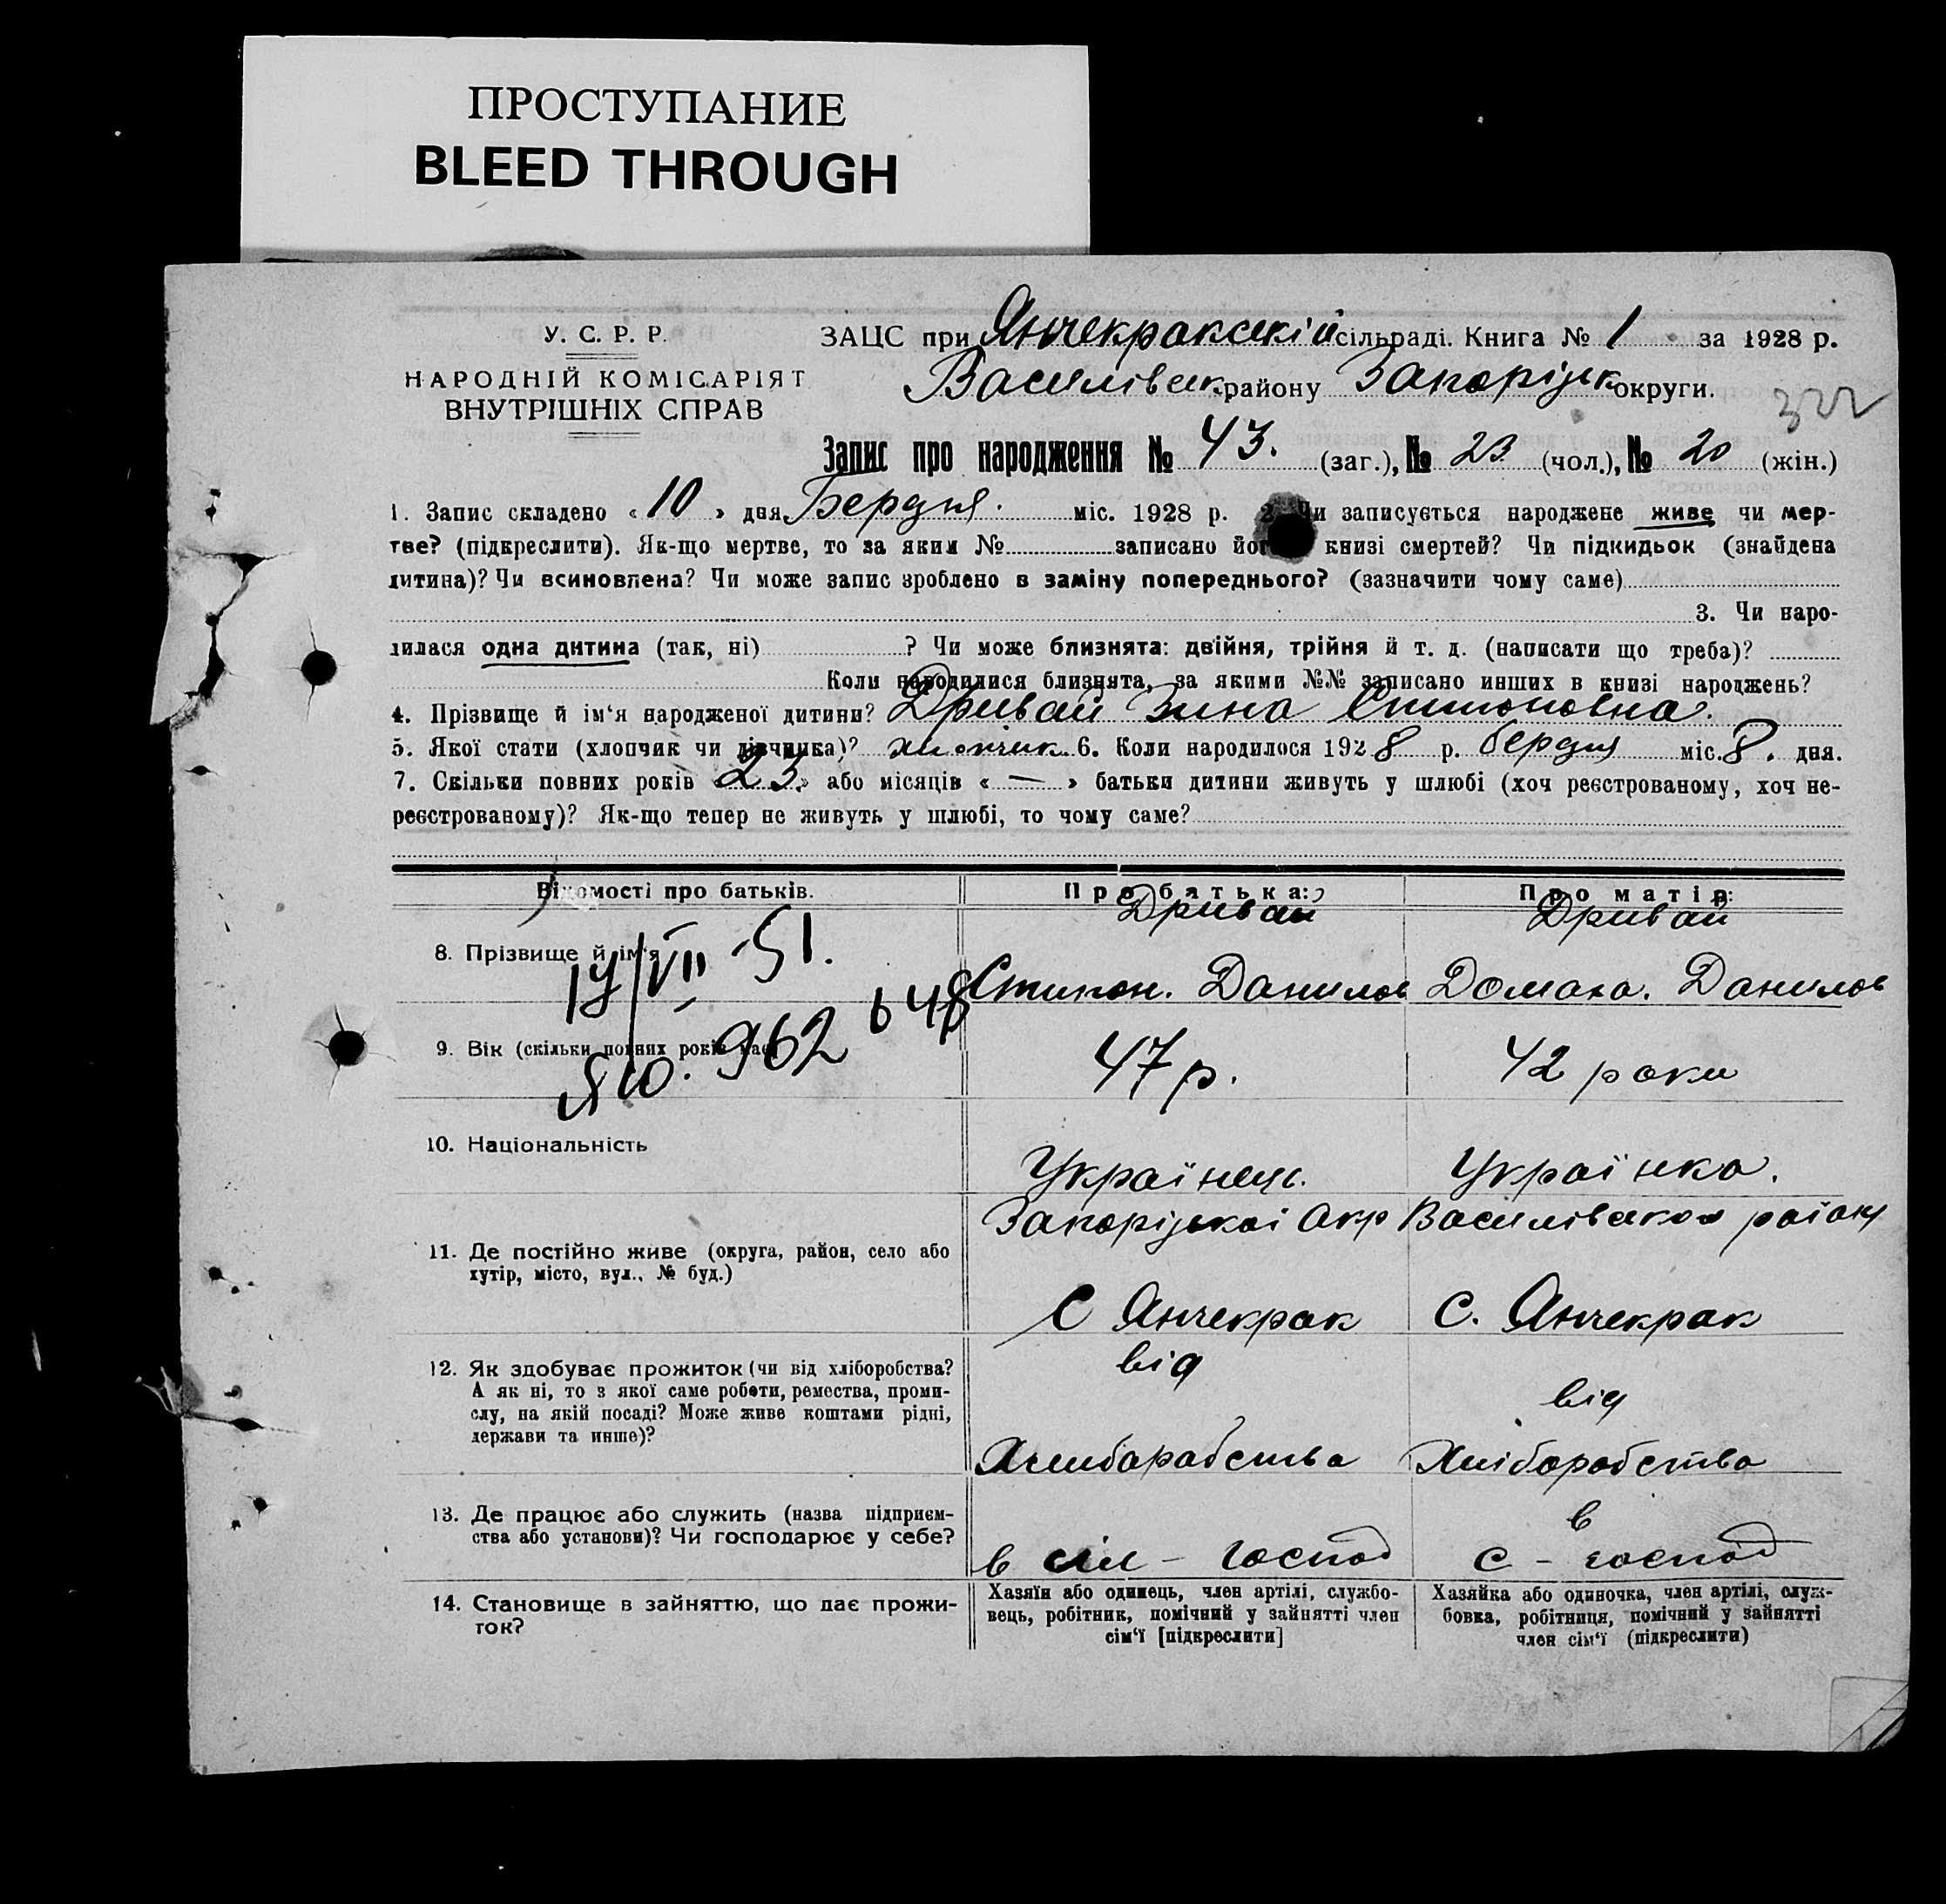 ПРОСТУПАНИЕ
BLEED THROUGH
У. С. Р. Р.
НАРОДНІЙ КОМІСАРІЯТ
ВНУТРІШНІХ СПРАВ
ЗАЦС при Янчекракскій сільраді. Книга № 1 за 1928 р.
Василівск району Запоріжк округи.
322
Запис про народження № 43. (заг.), № 23 (чол.), № 20 (жін.)
1. Запис складено « 10 » дня Березня. міс. 1928 р. 2. Чи записується народжене живе чи мер-
тве? (підкреслити). Як-що мертве, то за яким № записано йог книзі смертей? Чи підкидьок (знайдена
дитина)? Чи всиновлена? Чи може запис зроблено в заміну попереднього? (зазначити чому саме)
3. Чи наро-
дилася одна дитина (так, ні) ? Чи може близнята: двійня, трійня й т. д. (написати що треба)?
Коли народилися близнята, за якими №№ записано инших в книзі народжень?
4. Прізвище й ім‘я народженої дитини? Дривай Зина
5. Якої стати (хлопчик чи дівчинка)? хлопчик 6. Коли народилося 1928 р. березня міс. 8. дня.
7. Скільки повних років « 23 » або місяців « — » батьки дитини живуть у шлюбі (хоч реєстрованому, хоч не-
реєстрованому)? Як-що тепер не живуть у шлюбі, то чому саме?
Відомості про батьків. Про батька: Про матір:
Дривай Дривай
8. Прізвище й ім‘я
Данилов Домаха. Данилов
VII 51.
962 648
9. Вік (скільки повних років має)
47 р. 42 роки
10. Національність
Українець. Українка.
Запоріжкоі Окр Василівского раіону
11. Де постійно живе (округа, район, село або
хутір, місто, вул., № буд.)
С Янчекрак С. Янчекрак
12. Як здобуває прожиток (чи від хліборобства?
А як ні, то з якої саме роботи, ремества, проми-
слу, на якій посаді? Може живе коштами рідні,
держави та инше)?
від від
Хлибарабства Хліборобства
13. Де працює або служить (назва підприєм-
ства або установи)? Чи господарює у себе?
в сіл – господ в с – господ
14. Становище в зайняттю, що дає прожи-
ток?
Хазяїн або одинець, член артілі, службо-
вець, робітник, помічний у зайнятті член
сім‘ї [підкреслити]
Хазяйка або одиночка, член артілі, служ-
бовка, робітниця, помічний у зайнятті
член сім‘ї (підкреслити)